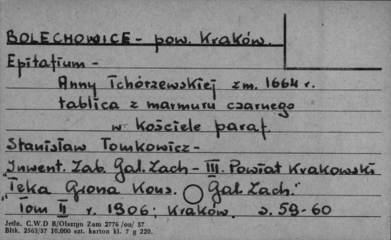 BOLECHOWICE - pow. Kraków.
Epitafium -
Anny Tchórzewskiej zm. 1664 r.
tablica z marmuru czarnego
w kościele paraf.
Stanisław Tomkowicz -
Inwent. Zab. Gal. Zach - III. Powiat Krakowski
"Teka Grona Kons. Gal. Zach."
Tom II r. 1906; Kraków, s. 59-60
Jedn. C.W D B/Olsztyn Zam 2776 /oa/ 57
Bltk. 2563/57 10.000 szt. karton kl. 7 g 220.